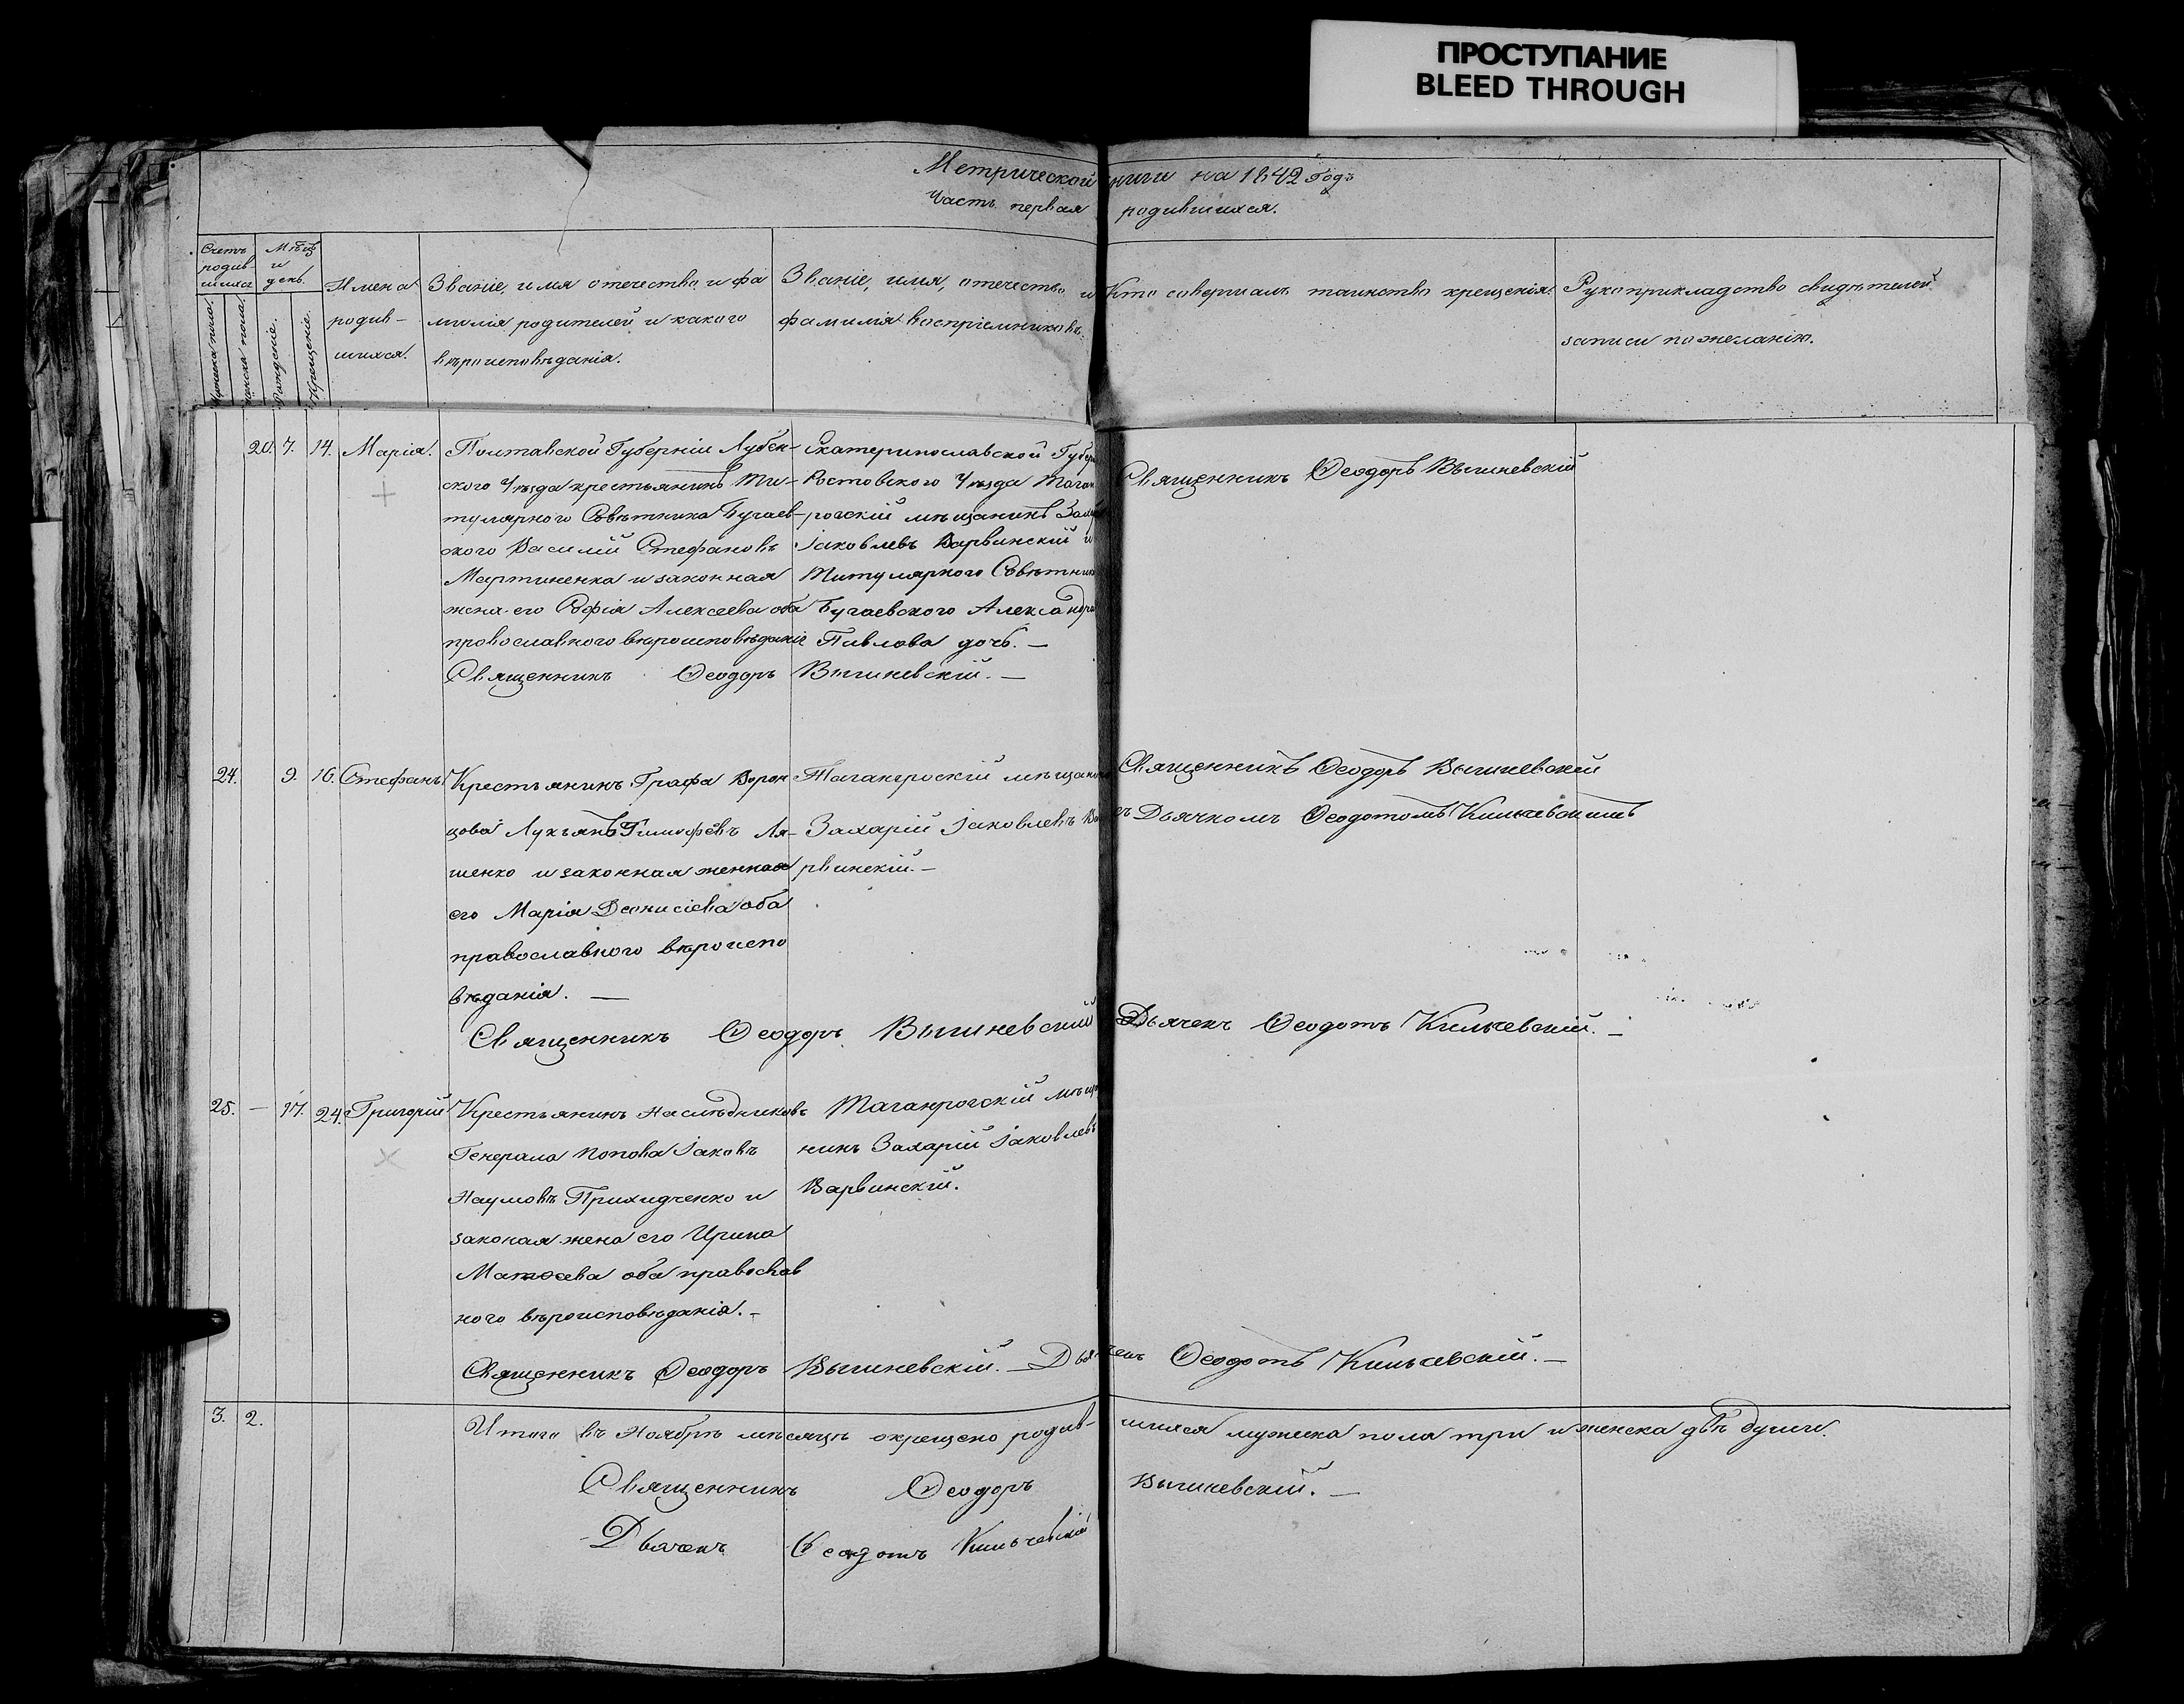 ПРОСТУПАНИЕ
BLEED THROUGH
Метрической книги на 1842 Годъ
Часть первая родившихся.
Счетъ родив-шихся
Мѣсяцъ и день.
Мужеска пола.
Женска пола.
Рожденіе.
Крещеніе.
Имена
родив-
шихся.
Званіе, имя отечество и фа
милія родителей и какого
вѣроисповѣданія.
Званіе, имя, отечество и
фамилія воспріемниковъ.
Кто совершалъ таинство крещенія.
Рукоприкладство свидѣтелей
записи по желанію.
20. 7. 14. Марія.
Полтавской Губерніи Лубен-
ского Уѣзда крестьянинъ Ти-
тулярного Совѣтника Бугаев-
ского Василій Стефановъ
Мартиненка и законная
жена его Софія Алексеева оба
провославного вѣроисповѣданіе
Екатеринославской Губер
Ростовского Уѣзда Таган
рогскій мѣщанинъ Захар
Іаковлевъ Варвинскій и
Титулярного Совѣтник
Бугаевского Александра
Павлова дочь. —
Священникъ Ѳеодоръ Вышневскій
Священникъ Ѳеодоръ Вышневскій. —
24. 9. 16. Стефанъ
Крестьянинъ Графа Ворон
цова Лукъянъ Тимофѣвъ Ля-
шенко и законная женная
его Марія Деонисіева оба
православного вѣроиспо
вѣданія. —
Таганроскій мѣщанинъ
Захарій Іаковлевъ Ва
рвинскій. —
Священникъ Ѳеодоръ Вышневский
съ Дьячкомъ Ѳеодотомъ Кильчевскимъ
Священникъ Ѳеодоръ Вышневский Дьячекъ Ѳеодотъ Кильчевскій. —
25. — 17. 24. Григорій
Крестьянинъ наслѣдниковъ
Генерала Попова Іаковъ
Наумовъ Приходченко и
законая жена его Ирина
Матѳеева оба православ
ного вѣроисповѣданія. —
Таганрогскій мѣща
нинъ Захарій Іаковлевъ
Варвинскій.
Священникъ Ѳеодоръ Вышневскій. — Дьячекъ Ѳеодотъ Кильчевскій. —
3. 2. Итого въ Ноябрѣ мѣсяцѣ окрещено родив-шихся мужеска пола три и женска двѣ души.
Священникъ Ѳеодоръ Вышневскій. —
Дьячекъ Ѳеодотъ Кильчевскій